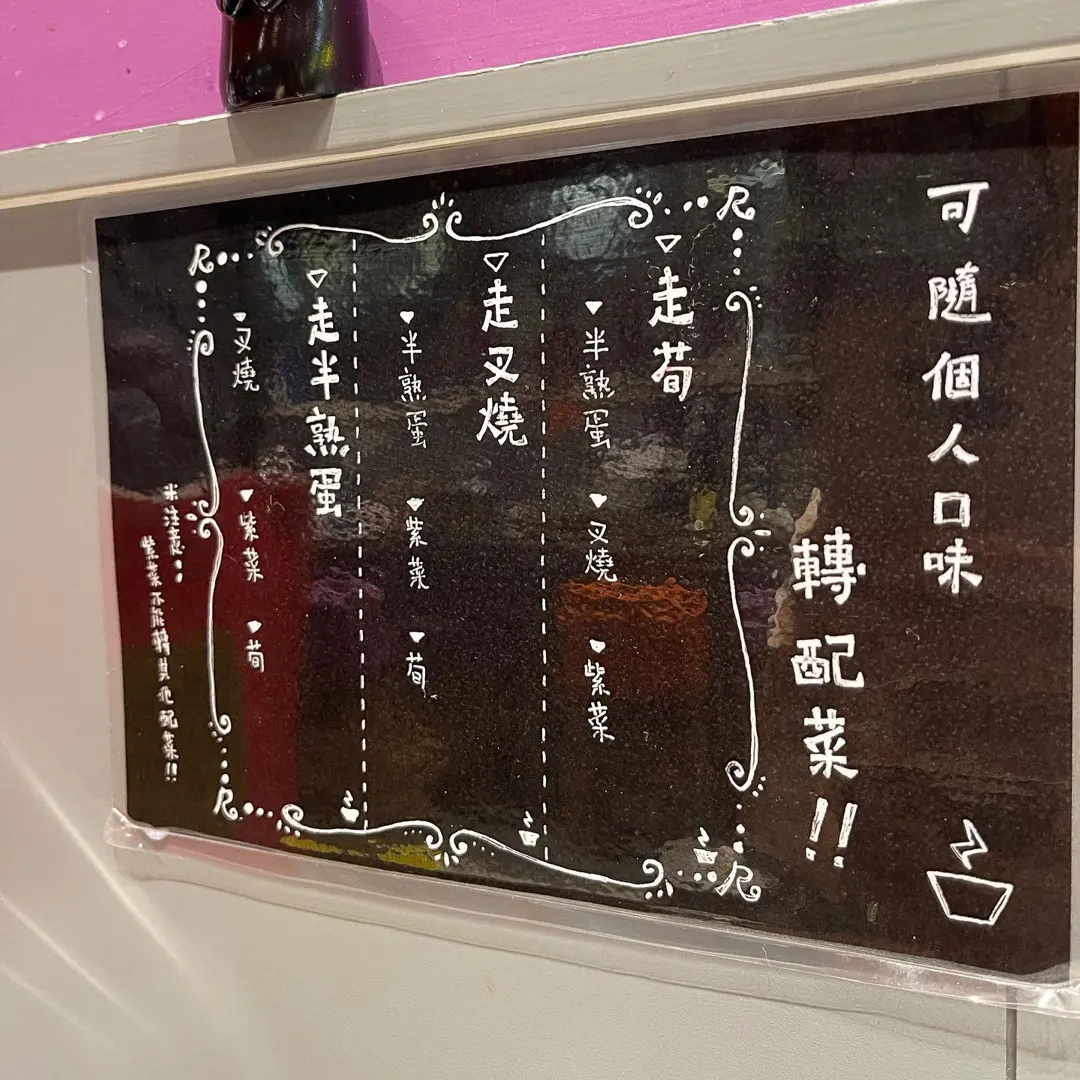 可隨個人口味
轉配菜!!
走荀
半熟蛋
叉燒
紫菜
走叉燒
半熟蛋
紫菜
荀
走半熟蛋
叉燒
紫菜
荀
米注意：
紫菜不能轉其化配菜!!